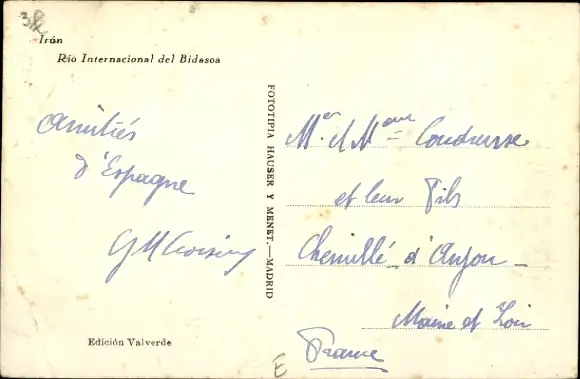 Irún
Río Internacional del Bidasoa
Amitiés
d'Espagne
Edición Valverde
FOTOTIPIA HAUSER Y MENET.—MADRID
Mr et Mme
et leur Fils
Chemillé d'Anjou
Maine et Loire
France
E